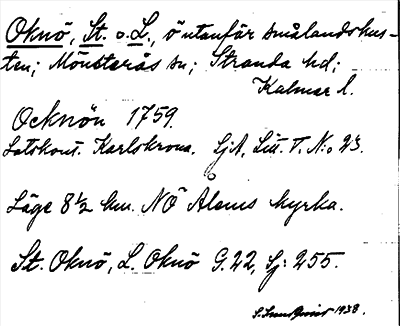 Oknö, St. o. L., ö utanför smålandskus-
ten; Mönsterås sn; Stranda hd;
Kalmar l.
Ocknön 1759.
Lotskont. Karlskrona. SjA, Litt. T. N:o 23.
Läge 8 1/2 km. NÖ Ålems kyrka.
St. Oknö, L. Oknö G. 22, Sj: 255.
S. Lundqvist 1938.